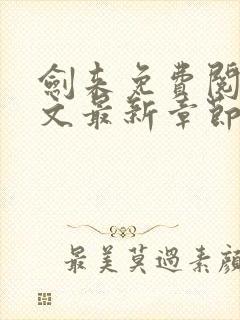 劍來免費閱
文最新章節
最美莫過素顏